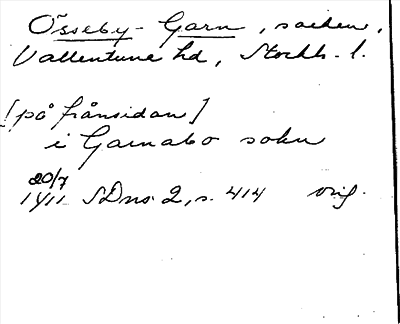 Össeby-Garn, socken,
Vallentuna hd, Stockh. l.
[på frånsidan]
i Garnabo sokn
20/7
1411 SDns 2, s. 414 orig.